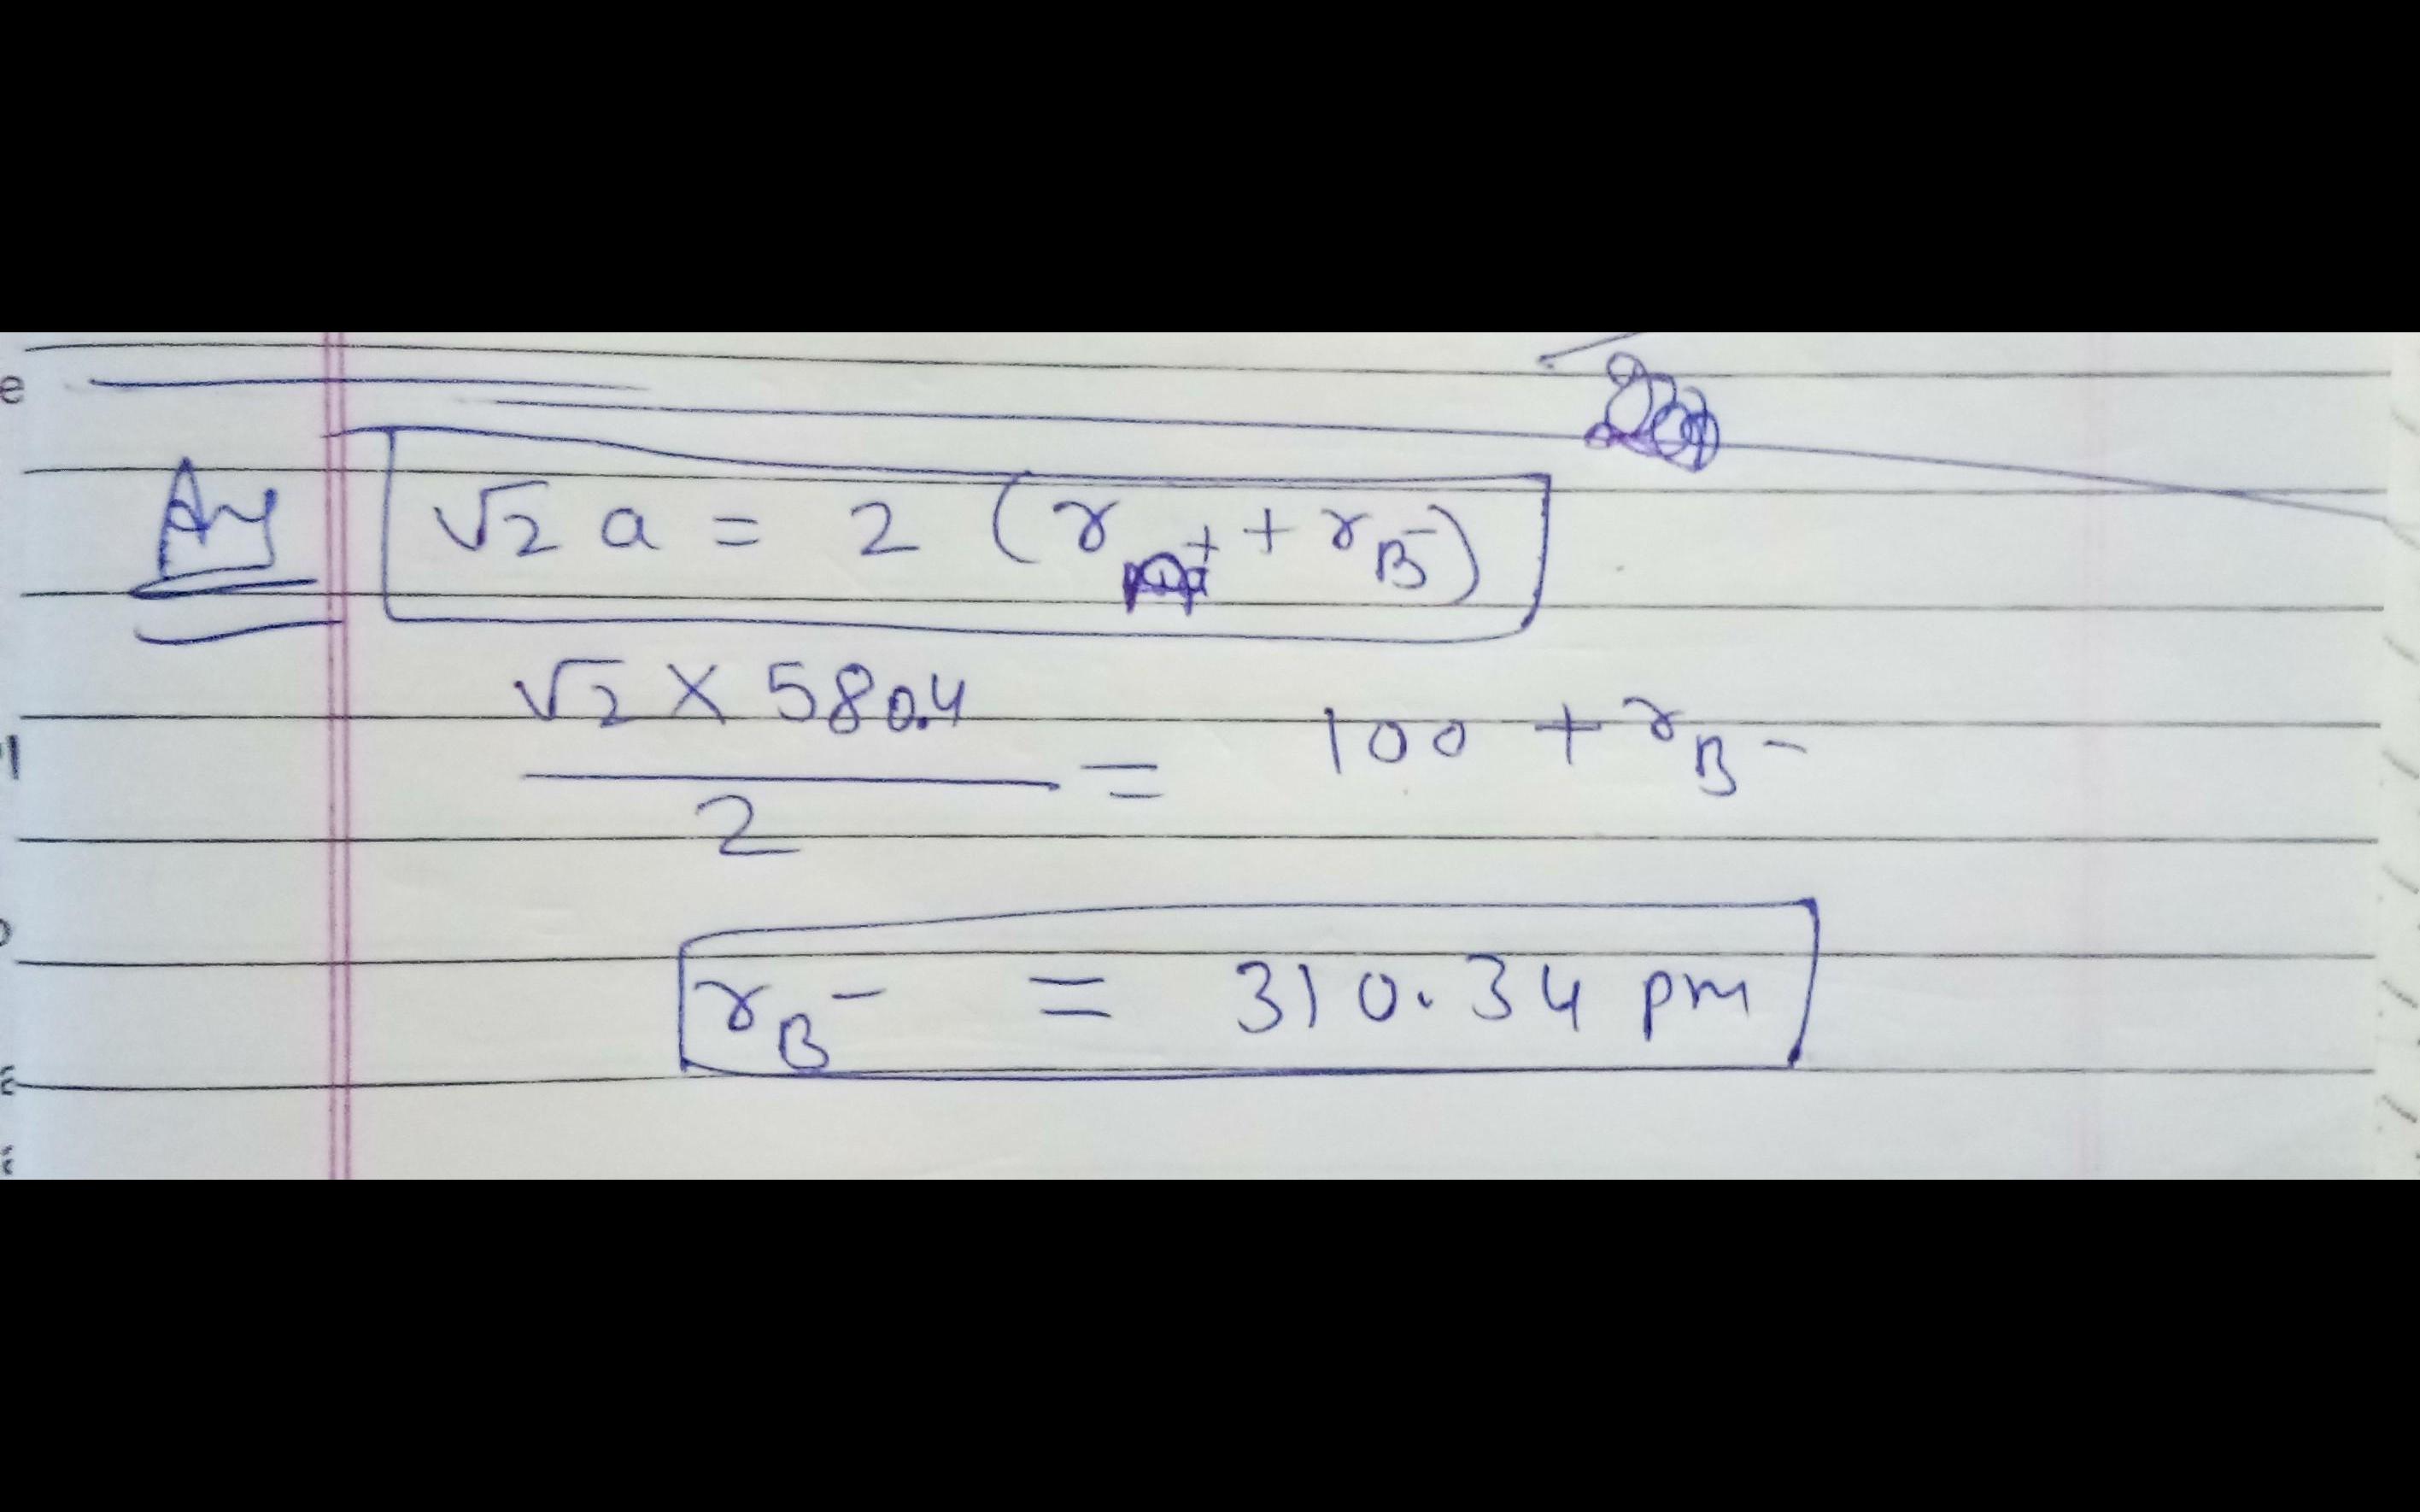 Ans √2 a = 2 (r + + r B-)
√2 × 580.4
= 100 + r B-
2
r B- = 310.34 pm